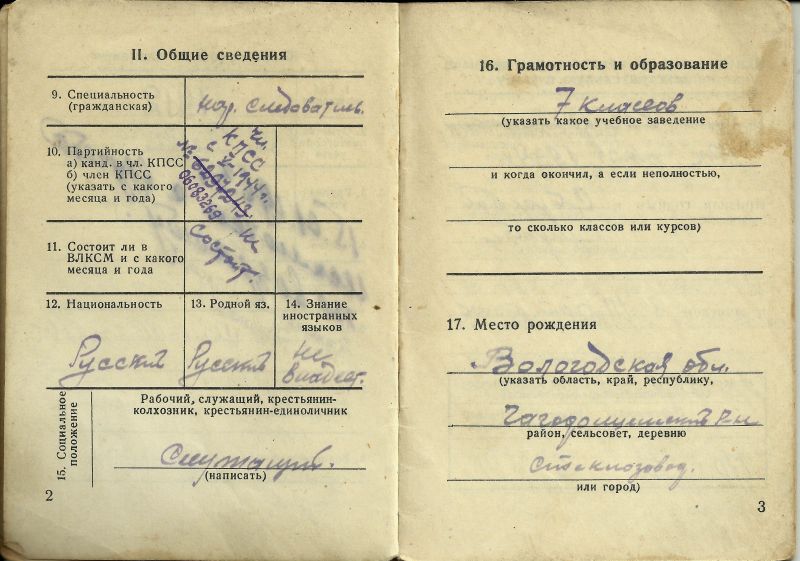 II. Общие сведения
9. Специальность
(гражданская)
нар. следователь.
10. Партийность
а) канд. в чл. КПСС
б) член КПСС
(указать с какого
месяца и года)
чл.
КПСС
с V-1944 г.
№
06083269
11. Состоит ли в
ВЛКСМ и с какого
месяца и года
не
состоит.
12. Национальность
Русский
13. Родной яз.
Русский
14. Знание
иностранных
языков
не
владеет.
15. Социальное
положение
Рабочий, служащий, крестьянин-
колхозник, крестьянин-единоличник
Служащий.
(написать)
2
16. Грамотность и образование
7 классов
(указать какое учебное заведение
и когда окончил, а если неполностью,
то сколько классов или курсов)
17. Место рождения
Вологодская обл.
(указать область, край, республику,
Чагодощенский р-н
район, сельсовет, деревню
Стеклозавод.
или город)
3